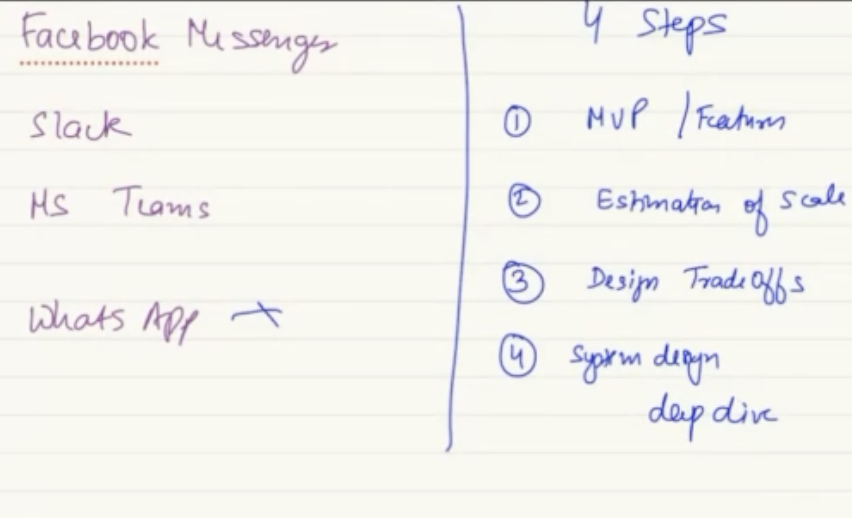 Facebook Messenger
Slack
MS Teams
Whats App
4 Steps
① MVP / Features
② Estimation of Scale
③ Design Trade Offs
④ System design
deep dive